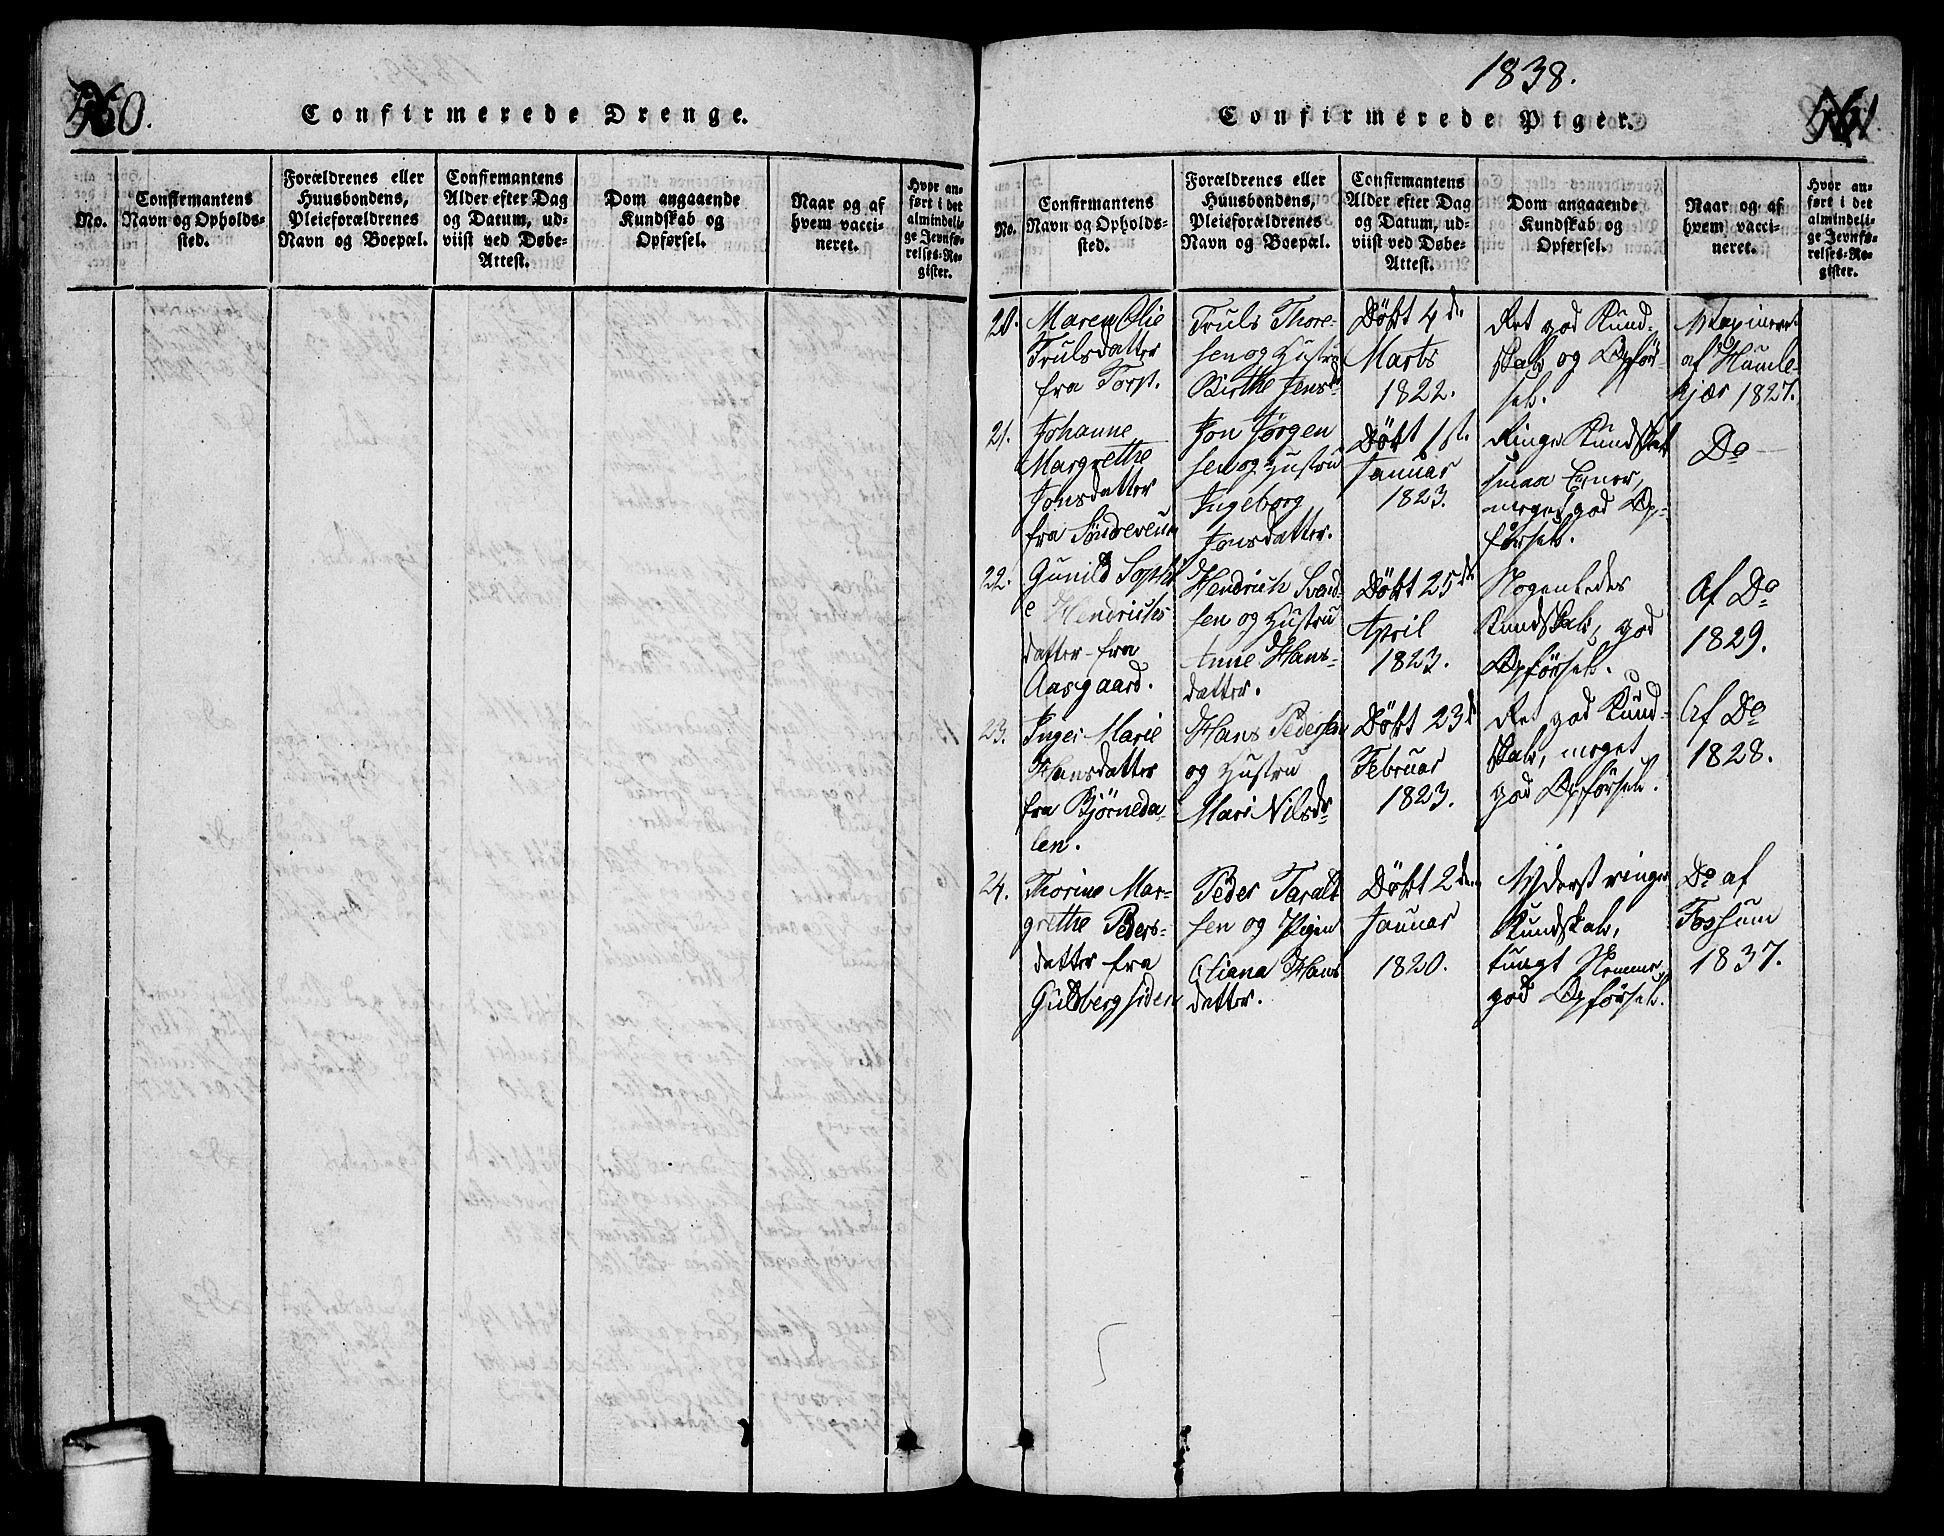 560.
Confirmerede Drenge.
No.
Confirmantens
Navn og Opholds-
sted.
Forældrenes eller
Huusbondens,
Pleieforældrenes
Navn og Boepæl.
Confirmantens
Alder efter Dag
og Datum, ud-
viist ved Døbe-
Attest.
Dom angaaende
Kundskab og
Opførsel.
Naar og af
hvem vacci-
neret.
Hvor an-
ført i det
almindeli-
ge Jevnfø-
relses-Re-
gister.
1838.
Confirmerede Piger.
561
No.
Confirmantens
Navn og Opholds-
sted.
Forældrenes eller
Huusbondens,
Pleieforældrenes
Navn og Boepæl.
Confirmantens
Alder efter Dag
og Datum, ud-
viist ved Døbe-
Attest.
Dom angaaende
Kundskab og
Opførsel.
Naar og af
hvem vacci-
neret.
Hvor an-
ført i det
almindeli-
ge Jevnfø-
relses-Re-
gister.
20.
Maren Olie
Trulsdatter
fra Torp.
Truls Thore-
sen og Hustru
Birthe Jensdr
Döbt 4de
Marts
1822.
Ret god Kund-
skab og Opför-
sel.
Vaxineret
af Humle-
kjær 1827.
21.
Johanne
Margrethe
Jonsdatter
fra Söndreveum
Jon Jörgen
sen og Hustru
Ingeborg
Jonsdatter.
Döbt 1st.
Januar
1823.
Ringe Kundskab
smaa Evner,
meget god Op-
försel.
Do
22.
Gunild Sophi
e Hendrichs-
datter fra
Aasgaard.
Hendrich Svend-
sen og Hustru
Anne Hans-
datter.
Döbt 25de
April
1823.
Nogenledes
Kundskab, god
Opförsel.
Af Do
1829.
23.
Inger Marie
Hansdatter
fra Björneda-
len.
Hans Pedersen
og Hustru
Mari Nilsdr
Döbt 23d
Februar
1823.
Ret god Kund-
skab, meget
god Opförsel.
Af Do
1828.
24.
Thorine Mar-
grethe Peders-
datter fra
Guldbergsiden
Peder Taralt
sen og Pigen
Oliana Hans
datter.
Döbt 2den
Januar
1820.
Yderst ringe
Kundskab,
tungt Nemme
god Opförsel.
Do af
Fossum
1837.